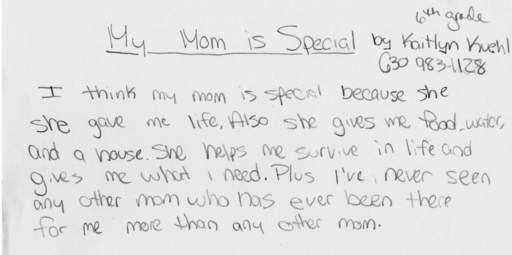 6th grade
My Mom is Special by Kaitlyn Kuehl
630 983-1128
I think my mom is special because she
she gave me life. Also she gives me food, water,
and a house. She helps me survive in life and
gives me what i need. Plus I've never seen
any other mom who has ever been there
for me more than any other mom.